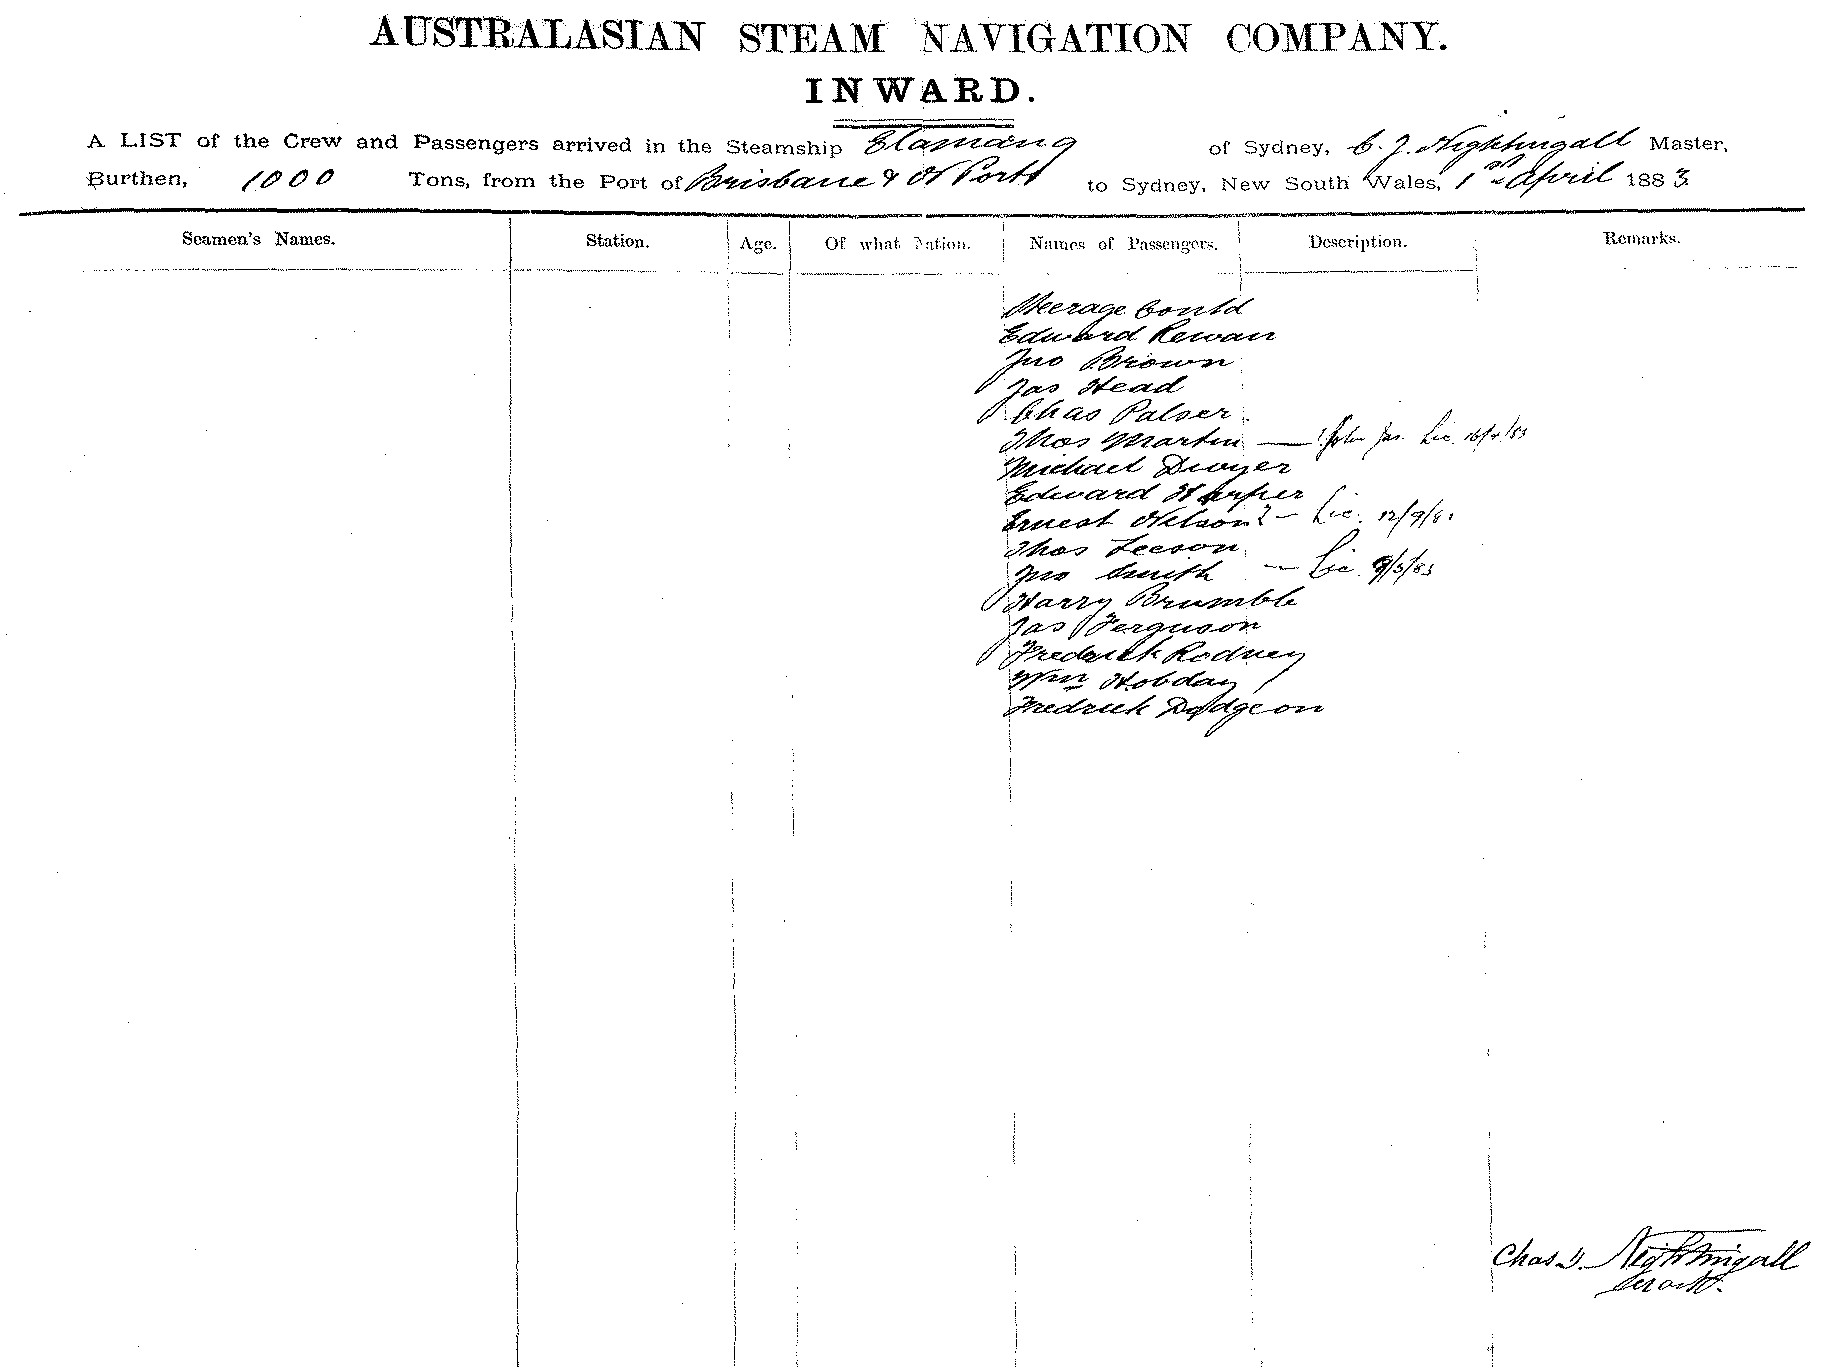 AUSTRALASIAN STEAM NAVIGATION COMPANY.
INWARD.
A LIST of the Crew and Passengers arrived in the Steamship Elamang of Sydney, C. J. Nightingall Master,
Burthen, 1000 Tons, from the Port of Brisbane & N Ports to Sydney, New South Wales, 1st April 1883
Seamen's Names. Station. Age. Of what Nation. Names of Passengers. Description. Remarks.
Steerage Contd
Edward Rewan
Jno Brown
Jas Head
Chas Palser
Thos Martin — John Jas. Lic. 16/4/83
Michael Dwyer
Edward Harper
Ernest Nelson ? — Lic. 12/9/81
Thos Leeson
Jno Smith — Lic
Harry Brumble
Jas Ferguson
Fredrick Rodney
Wm Hobday
Fredrick Dodgeon
Chas J. Nightingall